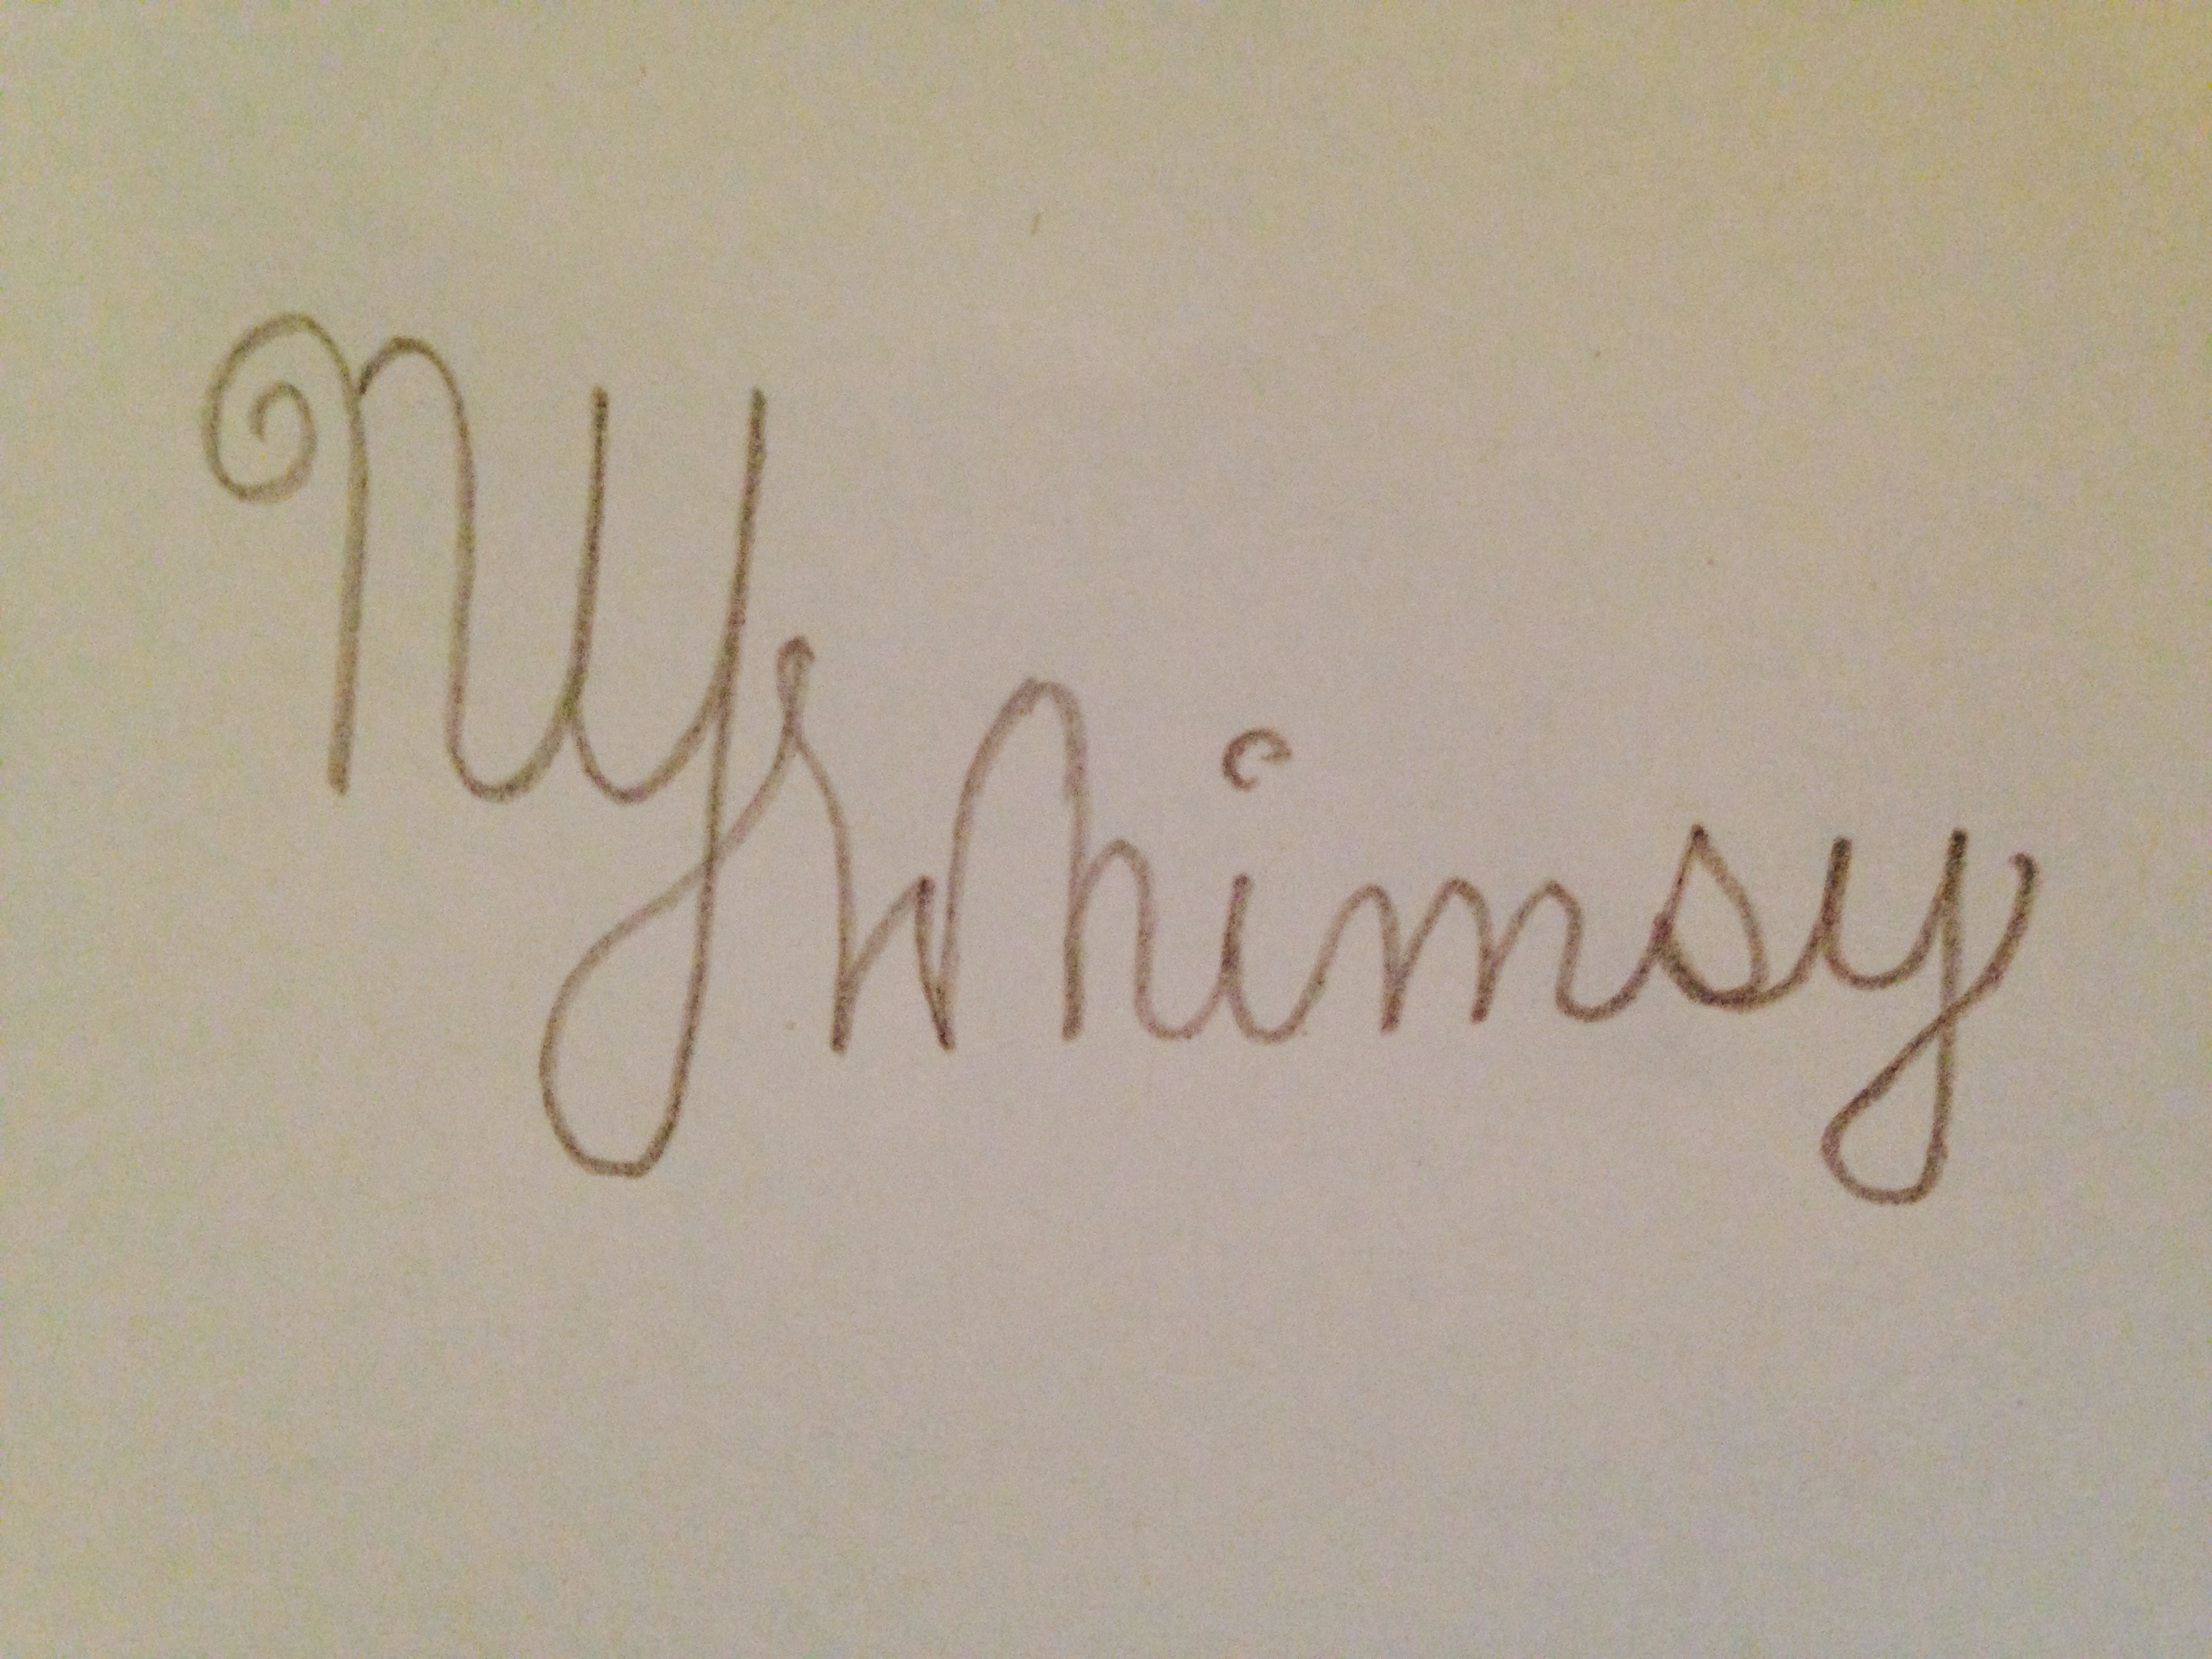 NY Whimsy